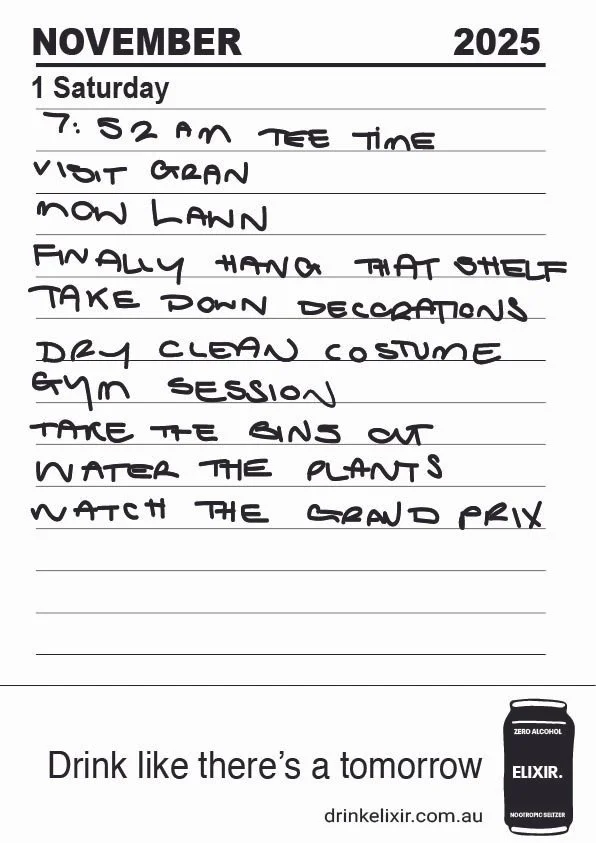 NOVEMBER 2025
1 Saturday
7:52 AM TEE TIME
VISIT GRAN
MOW LAWN
FINALLY HANG THAT SHELF
TAKE DOWN DECORATIONS
DRY CLEAN COSTUME
GYM SESSION
TAKE THE BINS OUT
WATER THE PLANTS
WATCH THE GRAND PRIX
Drink like there's a tomorrow
drinkelixir.com.au
ZERO ALCOHOL
ELIXIR.
NOOTROPIC SELTZER